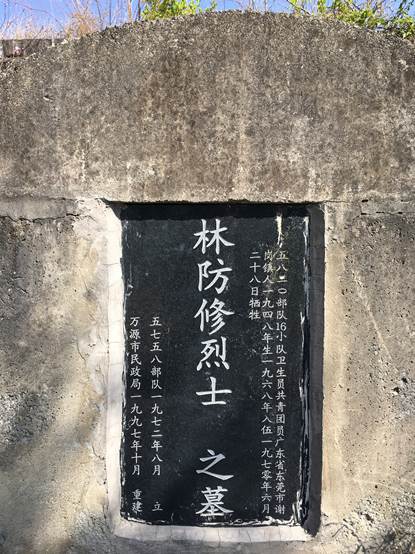 五八二〇部队16小队卫生员共青团员广东省东莞市谢
岗镇人一九四八年生一九六八年入伍一九七〇年六月
二十八日牺牲
林防修烈士之墓
五七五八部队一九七二年八月 立
万源市民政局一九九七年十月 重建